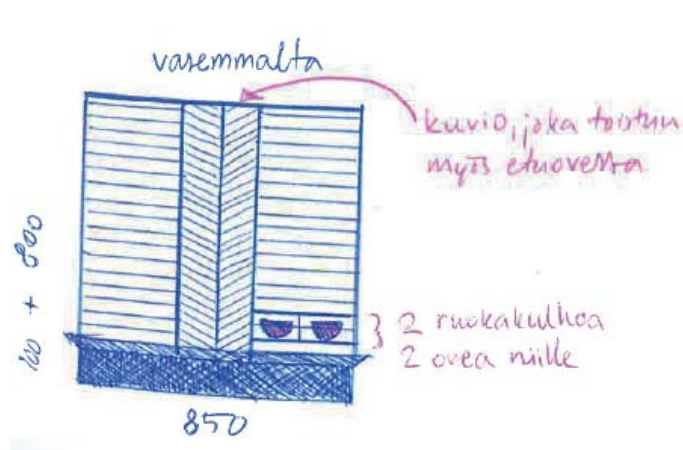 vasemmalta
kuvio, joka toistuu
myös etuovessa
100 + 800
2 ruokakulhoa
2 ovea niille
850